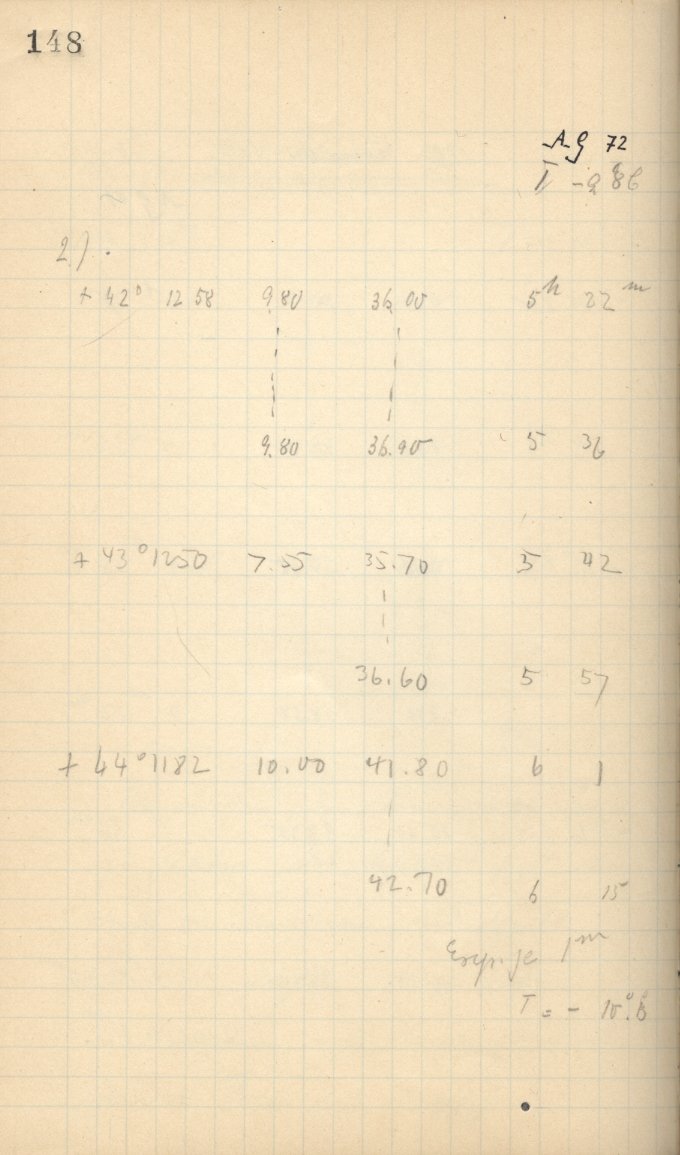 148
AG 72
2).
+ 42° 1258 9.80 36.00 5h 22m
9.80 36.90 5 36
+ 43° 1250 7.55 35.70 5 42
36.60 5 57
+ 44° 1182 10.00 41.80 6 1
42.70 6 15
1m
T = - 10°.6